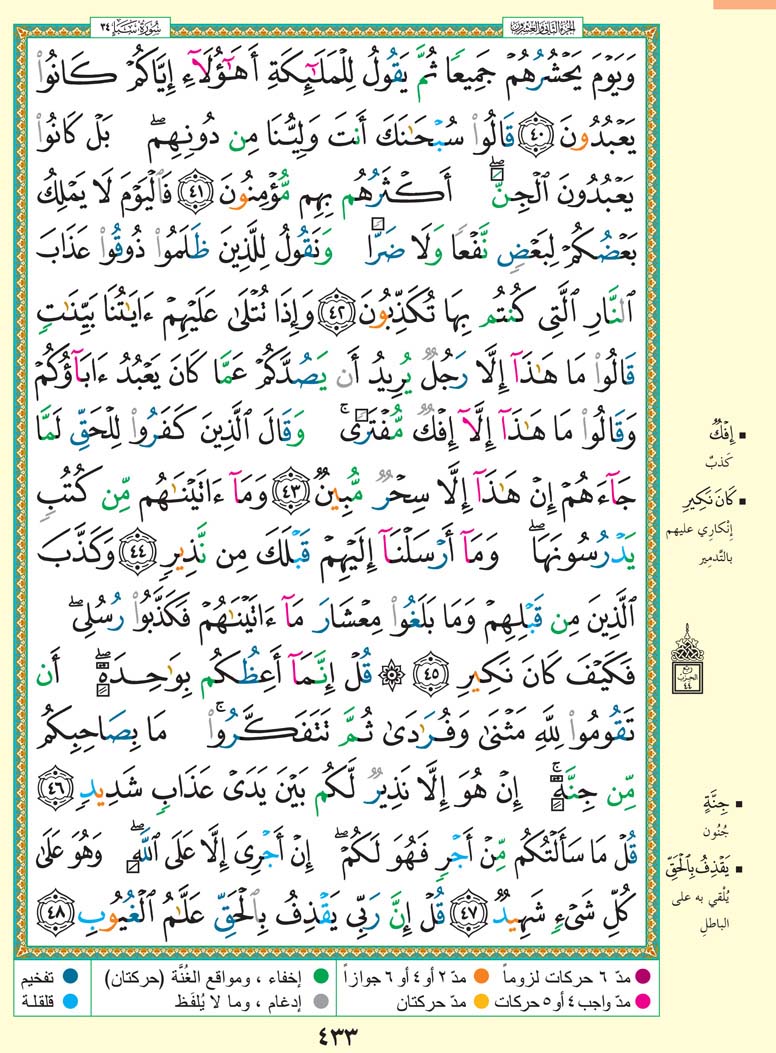 الجزء الثاني والعشرون
سُورَةُ سَبَإٍ ٣٤
وَيَوْمَ يَحْشُرُهُمْ جَمِيعًا ثُمَّ يَقُولُ لِلْمَلَٰٓئِكَةِ أَهَٰٓؤُلَآءِ إِيَّاكُمْ كَانُوا۟
يَعْبُدُونَ ٤٠ قَالُوا۟ سُبْحَٰنَكَ أَنتَ وَلِيُّنَا مِن دُونِهِم ۖ بَلْ كَانُوا۟
يَعْبُدُونَ ٱلْجِنَّ ۖ أَكْثَرُهُم بِهِم مُّؤْمِنُونَ ٤١ فَٱلْيَوْمَ لَا يَمْلِكُ
بَعْضُكُمْ لِبَعْضٍ نَّفْعًا وَلَا ضَرًّا وَنَقُولُ لِلَّذِينَ ظَلَمُوا۟ ذُوقُوا۟ عَذَابَ
ٱلنَّارِ ٱلَّتِى كُنتُم بِهَا تُكَذِّبُونَ ٤٢ وَإِذَا تُتْلَىٰ عَلَيْهِمْ ءَايَٰتُنَا بَيِّنَٰتٍ
قَالُوا۟ مَا هَٰذَآ إِلَّا رَجُلٌ يُرِيدُ أَن يَصُدَّكُمْ عَمَّا كَانَ يَعْبُدُ ءَابَآؤُكُمْ
وَقَالُوا۟ مَا هَٰذَآ إِلَّآ إِفْكٌ مُّفْتَرًى ۚ وَقَالَ ٱلَّذِينَ كَفَرُوا۟ لِلْحَقِّ لَمَّا
جَآءَهُمْ إِنْ هَٰذَآ إِلَّا سِحْرٌ مُّبِينٌ ٤٣ وَمَآ ءَاتَيْنَٰهُم مِّن كُتُبٍ
يَدْرُسُونَهَا ۖ وَمَآ أَرْسَلْنَآ إِلَيْهِمْ قَبْلَكَ مِن نَّذِيرٍ ٤٤ وَكَذَّبَ
ٱلَّذِينَ مِن قَبْلِهِمْ وَمَا بَلَغُوا۟ مِعْشَارَ مَآ ءَاتَيْنَٰهُمْ فَكَذَّبُوا۟ رُسُلِى ۖ
فَكَيْفَ كَانَ نَكِيرِ ٤٥ ۞ قُلْ إِنَّمَآ أَعِظُكُم بِوَٰحِدَةٍ ۖ أَن
تَقُومُوا۟ لِلَّهِ مَثْنَىٰ وَفُرَٰدَىٰ ثُمَّ تَتَفَكَّرُوا۟ ۚ مَا بِصَاحِبِكُم
مِّن جِنَّةٍ ۚ إِنْ هُوَ إِلَّا نَذِيرٌ لَّكُم بَيْنَ يَدَىْ عَذَابٍ شَدِيدٍ ٤٦
قُلْ مَا سَأَلْتُكُم مِّنْ أَجْرٍ فَهُوَ لَكُمْ ۖ إِنْ أَجْرِىَ إِلَّا عَلَى ٱللَّهِ ۖ وَهُوَ عَلَىٰ
كُلِّ شَىْءٍ شَهِيدٌ ٤٧ قُلْ إِنَّ رَبِّى يَقْذِفُ بِٱلْحَقِّ عَلَّٰمُ ٱلْغُيُوبِ ٤٨
▪ إِفْكٌ
كَذبٌ
▪ كَانَ نَكِيرِ
إنْكاري عليهم
بالتَّدمِير
ربع
الحزب
٤٤
▪ جِنَّةٍ
جُنُون
▪ يَقْذِفُ بِالْحَقِّ
يُلْقي به على
الباطلِ
● مدّ ٦ حركات لزوماً ● مدّ ٢ أو ٤ أو ٦ جوازاً ● إخفاء ، ومواقع الغُنَّة (حركتان) ● تفخيم
● مدّ واجب ٤ أو ٥ حركات ● مدّ حركتان ● إدغام ، وما لا يُلفَظ ● قلقلة
٤٣٣